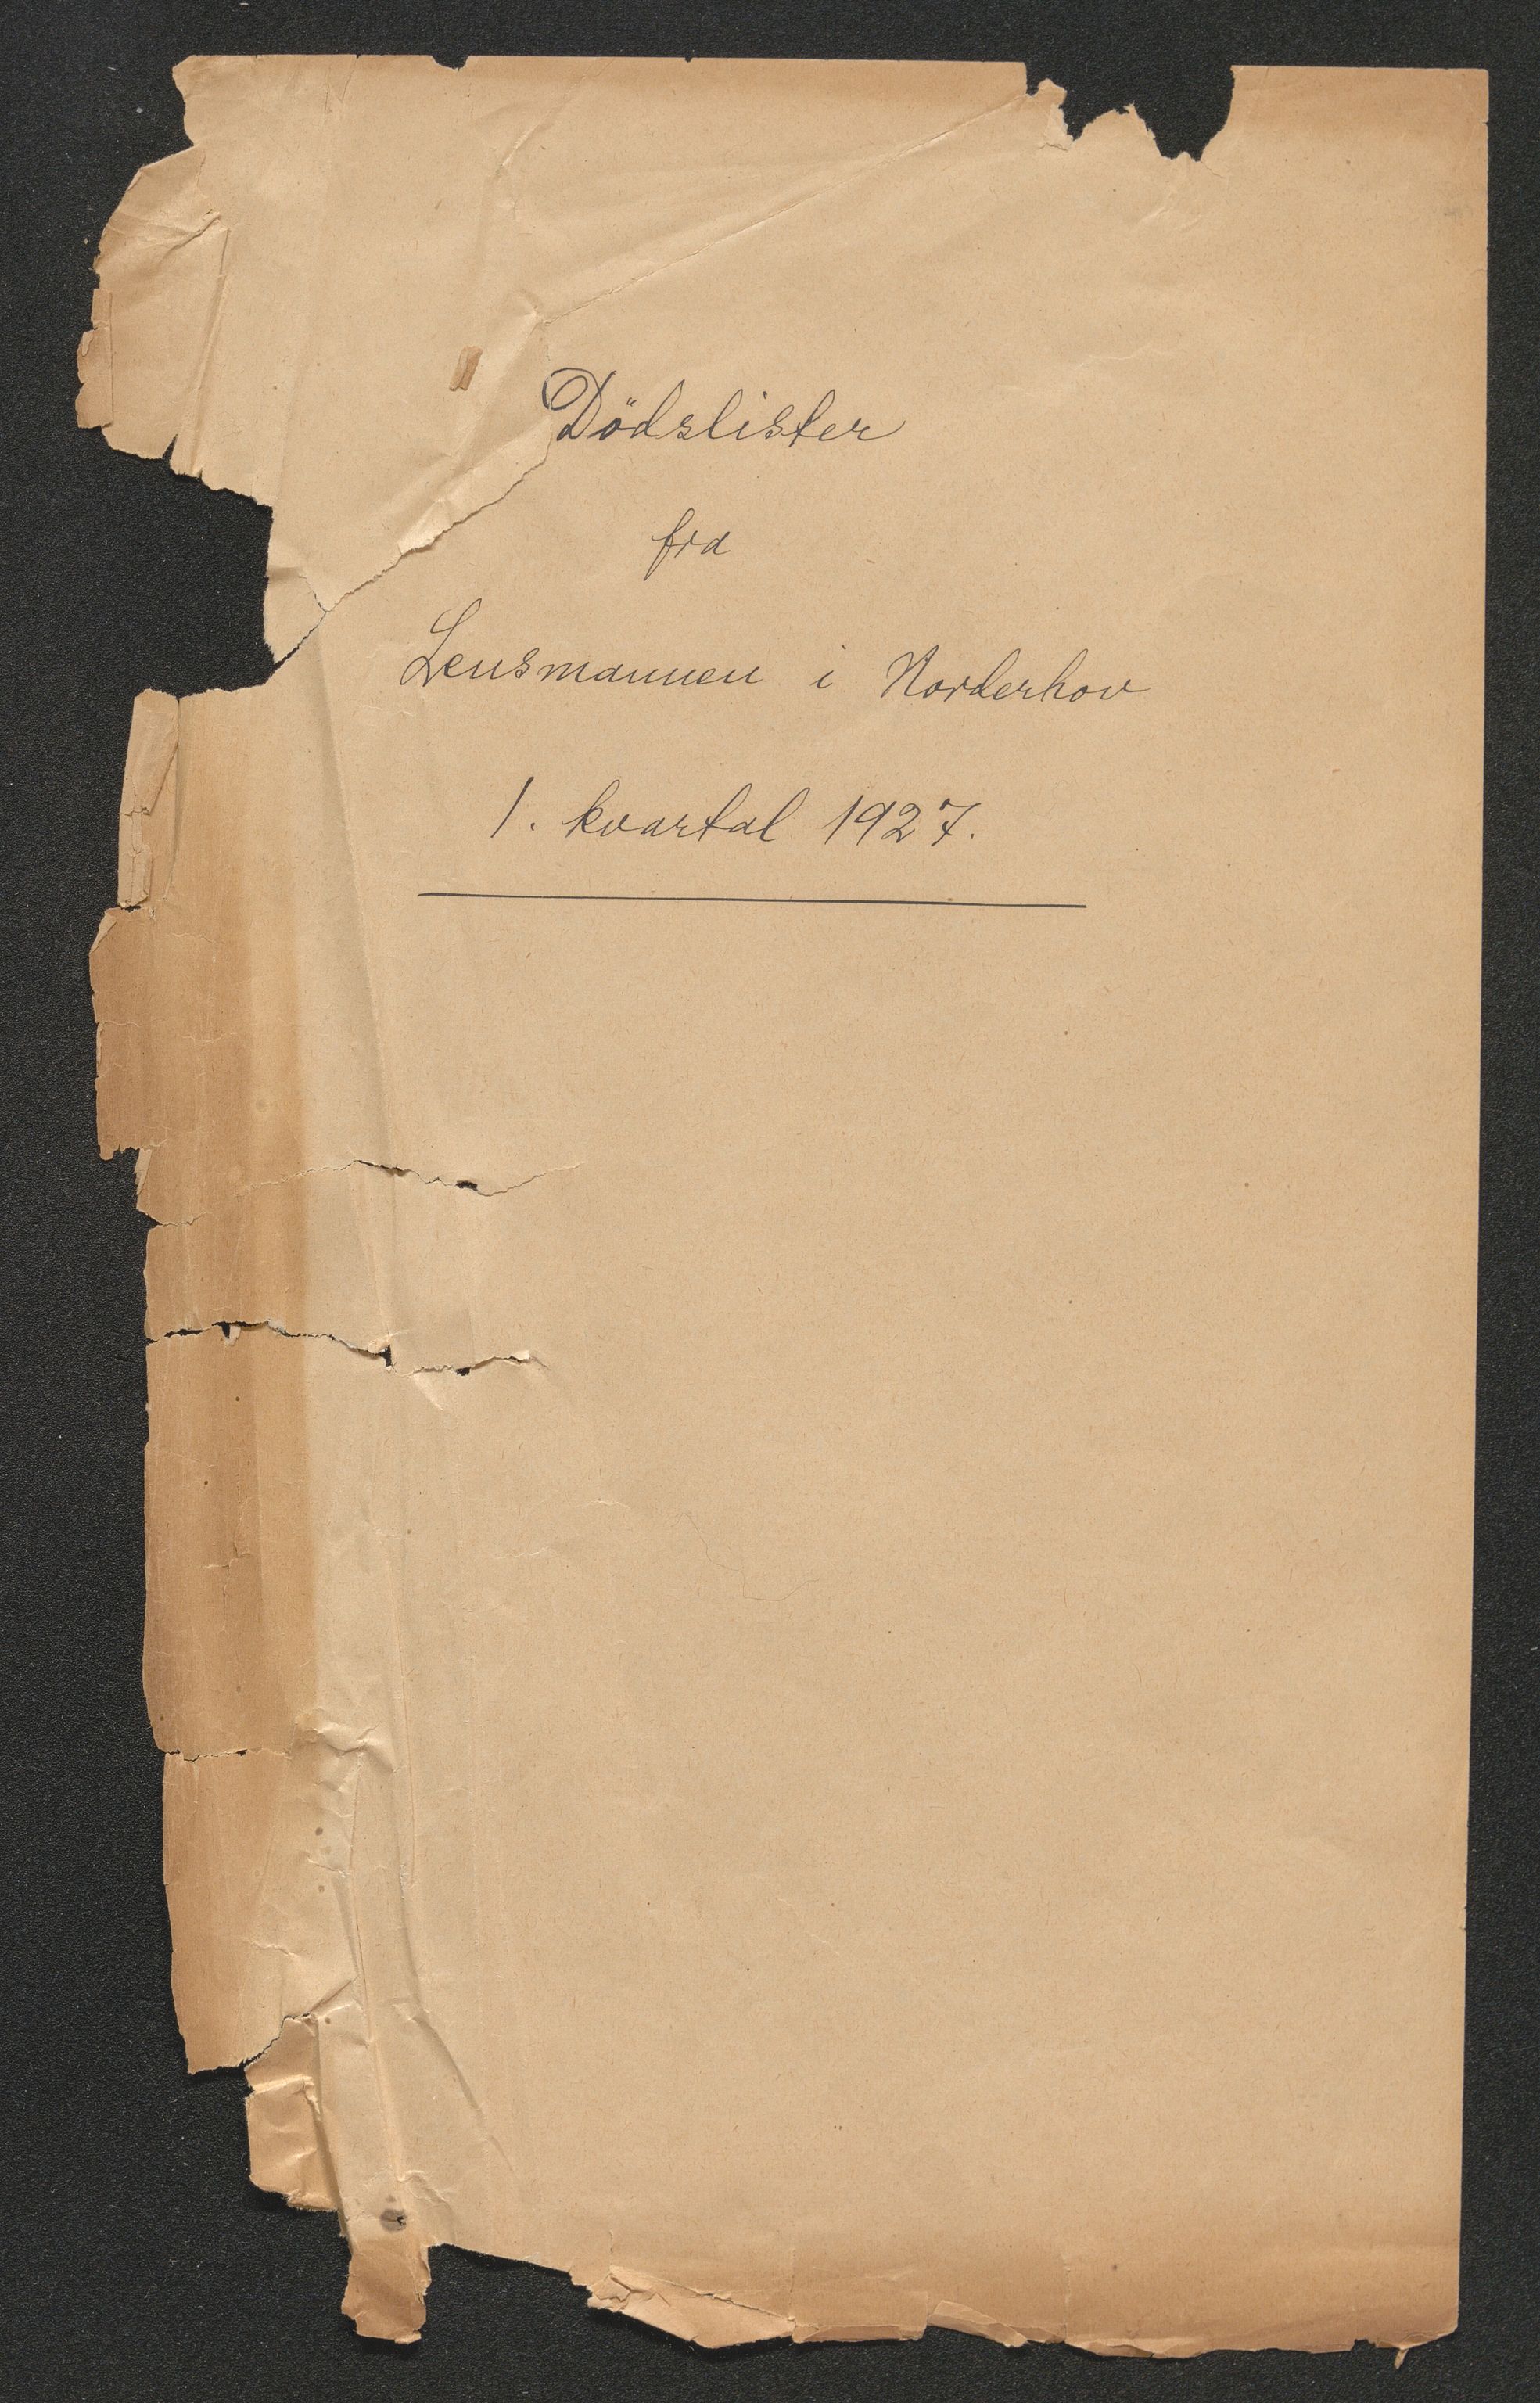 Dödslister
fra
Lensmannen i Norderhov
1. kvartal 1927.